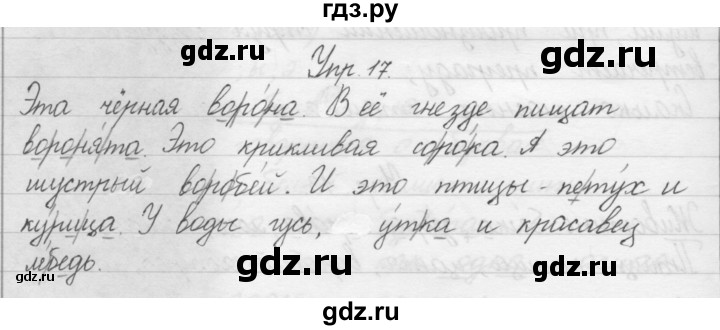 гдз.ру
gdz.ru gdz.ru
Упр. 17.
Эта чёрная ворона. В её гнезде пищат
gdz.ru gdz.ru
воронята. Это крикливая сорока. А это
шустрый воробей. И это птицы - петух и
gdz.ru gdz.ru
курица. У воды гусь, утка и красавец
лебедь.
gdz.ru gdz.ru
gdz.ru